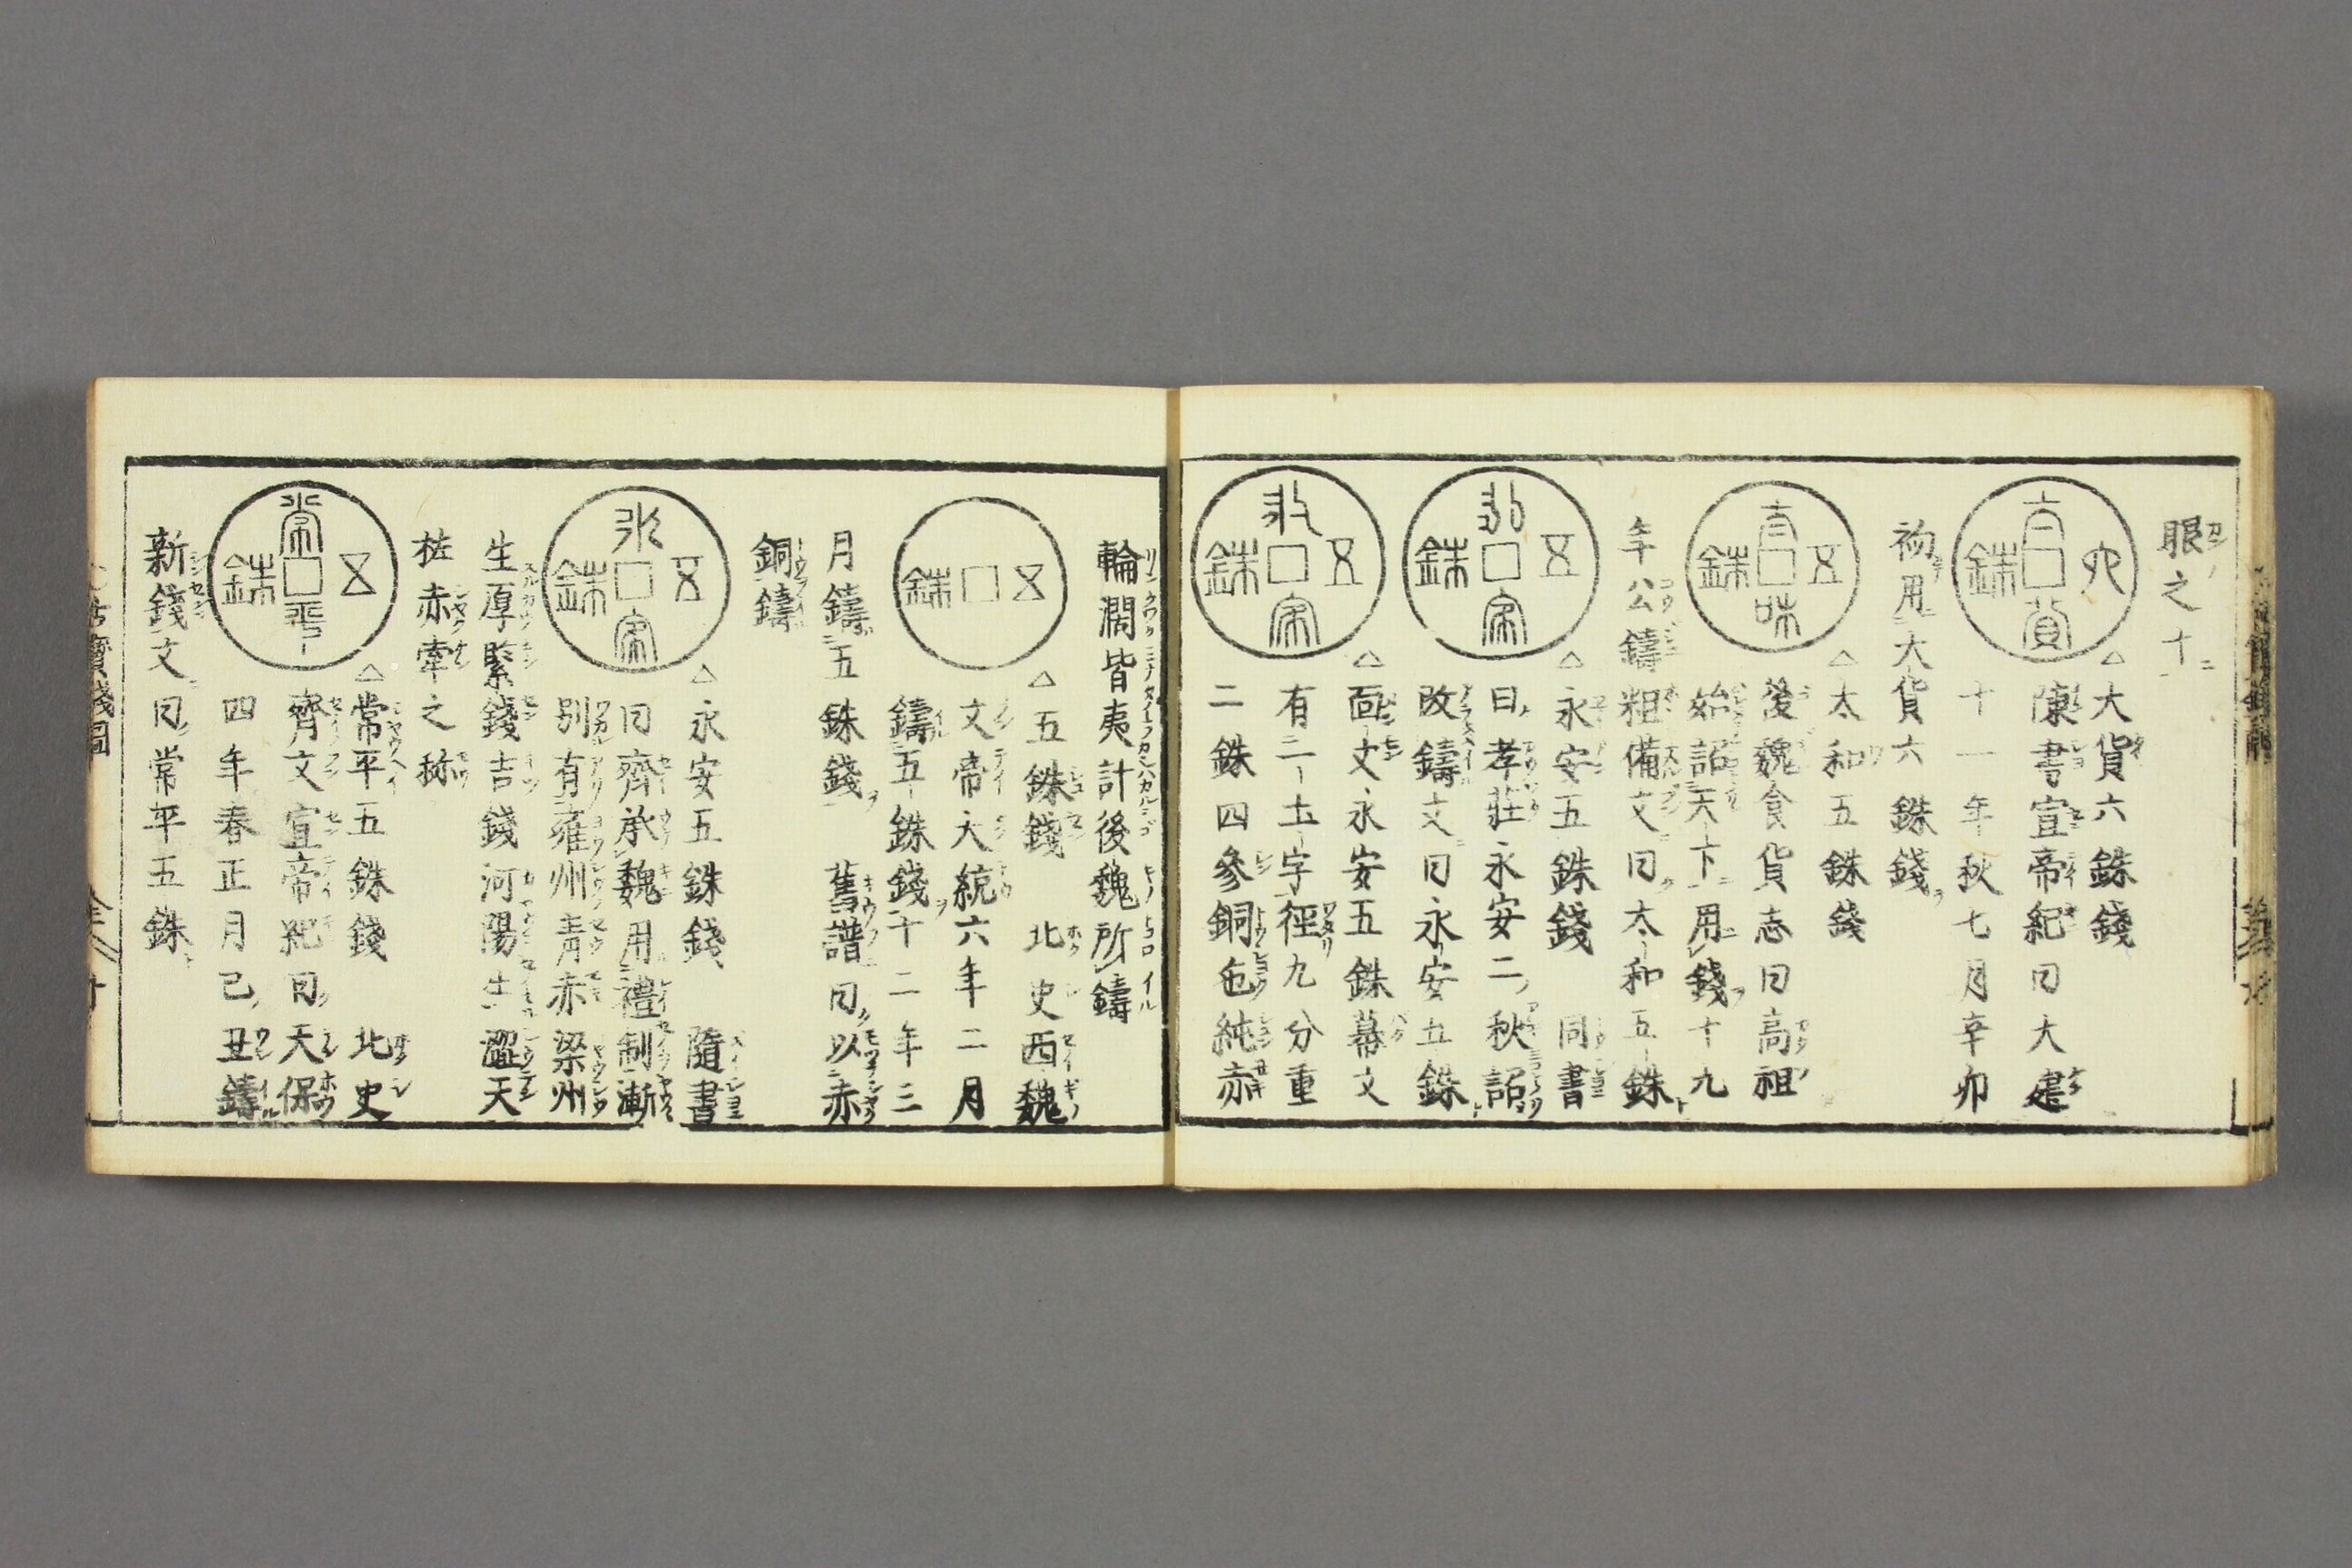 眼之十
△大貨六銖錢
陳書宣帝紀曰大建
十一年秋七月辛卯
初用大貨六銖錢
△太和五銖錢
後魏食貨志曰高祖
始詔天下用錢十九
年公鑄粗備文曰太和五銖
△永安五銖錢 同書
曰孝莊永安二秋詔
改鑄文曰永安五銖
△面文永安五銖幕文
有二土字徑九分重
二銖四參銅色純赤
輪濶皆夷計後魏所鑄
△五銖錢 北史西魏
文帝大統六年二月
鑄五銖錢十二年三
月鑄五銖錢 舊譜曰以赤
銅鑄
△永安五銖錢 隨書
曰齊承魏用禮制漸
別有雍州青赤梁州
生厚緊錢吉錢河陽生澀天
柱赤牽之称
△常平五銖錢 北史
齊文宣帝紀曰天保
四年春正月己丑鑄
新錢文曰常平五銖